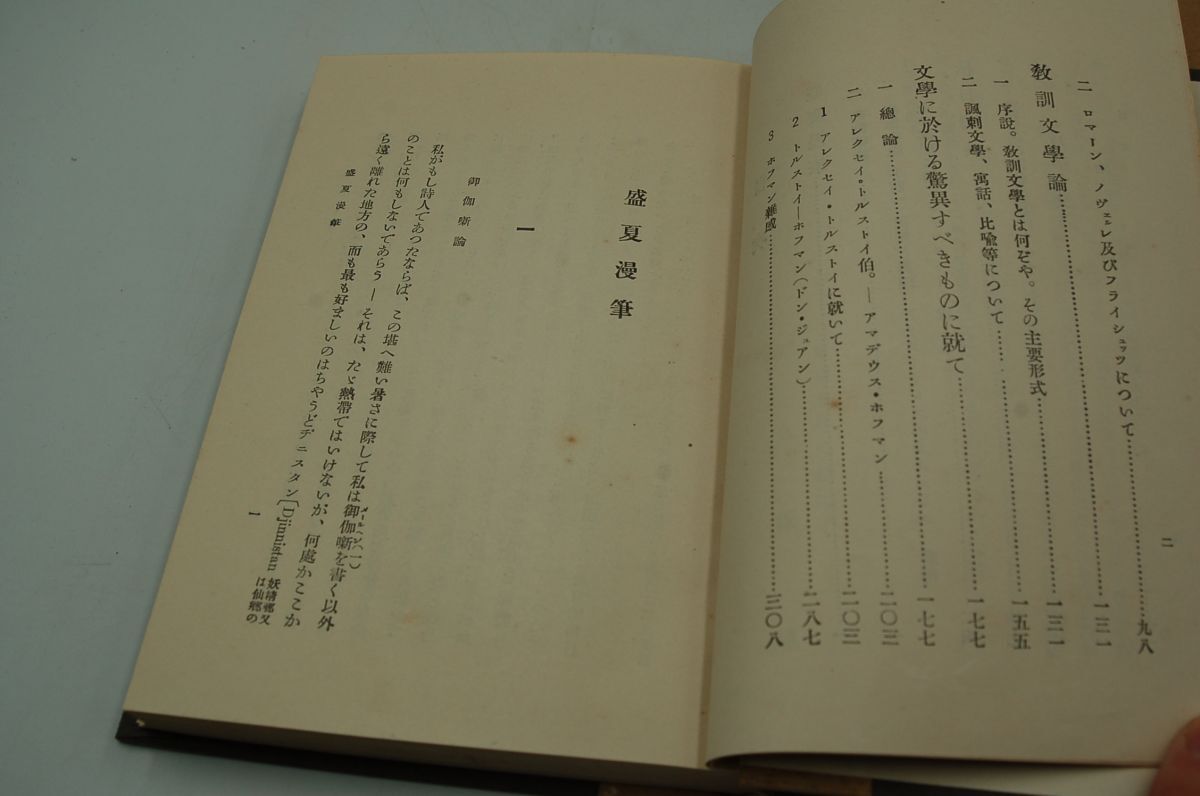 二 ロマーン、ノヴェルレ及びフライシュッツについて……九八
敎訓文學論……一三一
一 序說。敎訓文學とは何ぞや。その主要形式……一三一
二 諷刺文學、寓話、比喩等について……一五五
文學に於ける驚異すべきものに就て……一七七
一 總論……一七七
二 アレクセイ・トルストイ伯。—アマデウス・ホフマン……二〇三
1 アレクセイ・トルストイに就いて……二〇三
2 トルストイ—ホフマン(ドン・ジュアン)……二八七
3 ホフマン雜感……三〇八
二
盛夏漫筆
一
御伽噺論
私がもし詩人であつたならば、この堪へ難い暑さに際して私は御伽噺(一)を書く以外
のことは何もしないであらう—それは、たゞ熱帶ではいけないが、何處かここか
ら遠く離れた地方の、而も最も好ましいのはちやうどヂニスタン〔Djinnistan 妖精鄕又は仙鄕の
盛夏漫筆
一